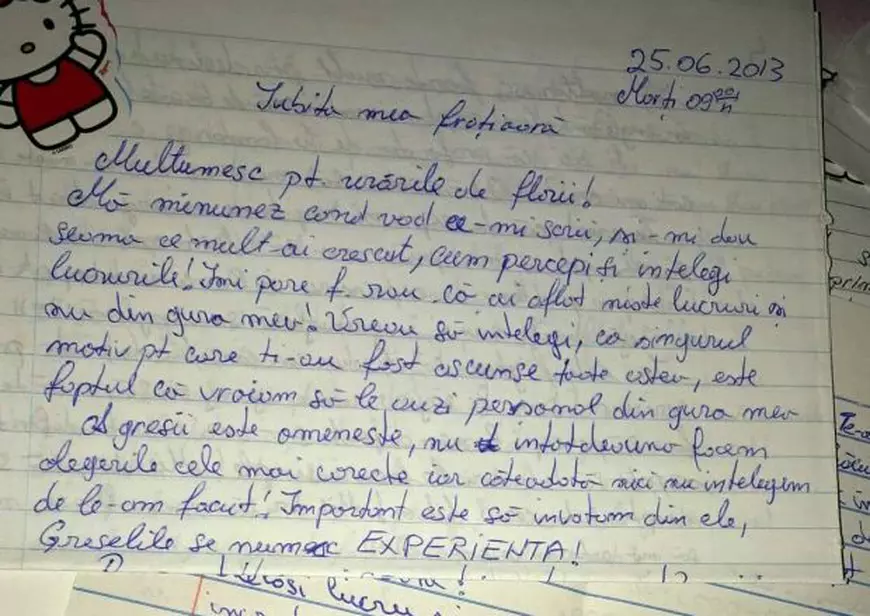 25.06.2013
Marți 09:00/n
Iubita mea frațioară
Multumesc pt. urările de florii!
Mă minunez cand vad ce-mi scrii, și-mi dau
seama ce mult-ai crescut, cum percepi si intelegi
lucrurile! Imi pare f. rau că ai aflat niste lucruri și
nu din gura mea! Vreau să intelegi, ca singurul
motiv pt care ti-au fost ascunse toate astea, este
faptul că vroiam să le auzi personal din gura mea
A gresii este omeneste, nu intotdeauna facem
alegerile cele mai corecte iar câteodată nici nu intelegem
de le-am facut! Important este să invatam din ele,
Greselile se numesc EXPERIENTA!
lucru